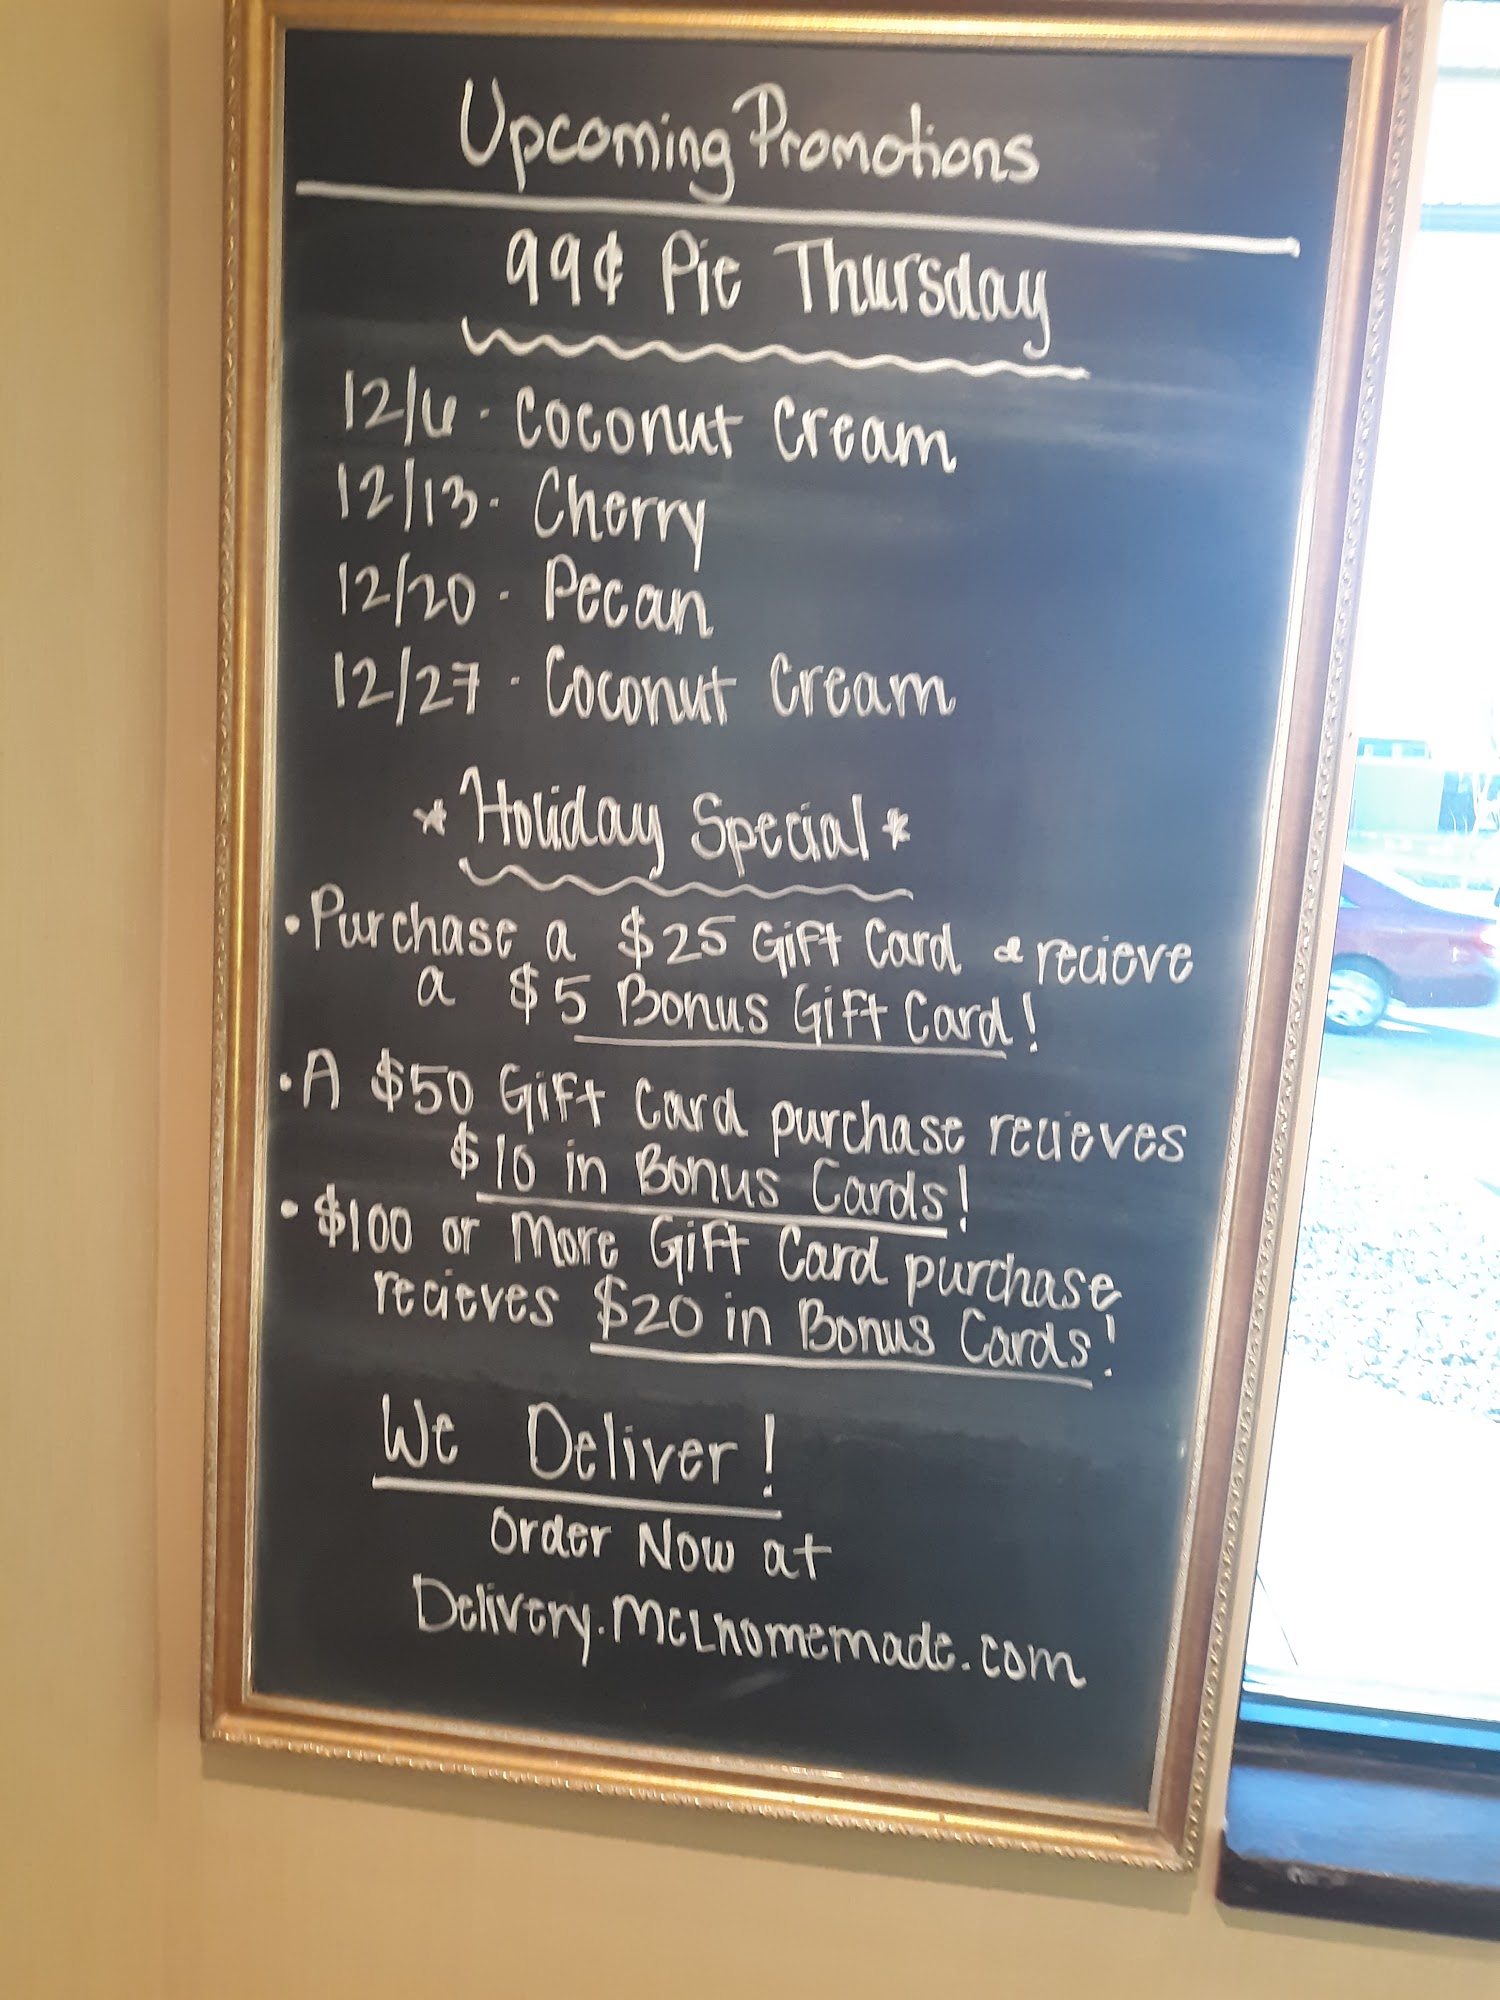 Upcoming Promotions
99¢ Pie Thursday
12/6 - Coconut Cream
12/13 - Cherry
12/20 - Pecan
12/27 - Coconut Cream
* Holiday Special *
• Purchase a $25 Gift Card & recieve
a $5 Bonus Gift Card!
• A $50 Gift Card purchase recieves
$10 in Bonus Cards!
• $100 or more Gift Card purchase
recieves $20 in Bonus Cards!
We Deliver!
Order Now at
Delivery.McLhomemade.com